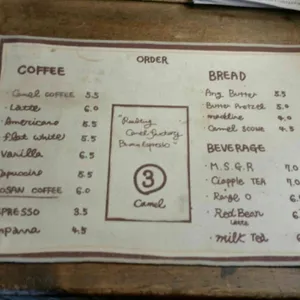 ORDER
COFFEE
Camel COFFEE 5.5
Latte 6.0
Americano 5.5
flat white 5.5
Vanilla 6.5
Capuccino 5.5
DOSAN COFFEE 6.0
SPRESSO 3.5
mpanna 4.5
Roasting
Camel factory
Brown Espresso
3
Camel
BREAD
Ang Butter 5.5
Butter Pretzel 5.0
madeline 4.0
Camel SCONE 4.5
BEVERAGE
M.S.G.R 7.0
Ciapple TEA 7.0
6.
Red Bean 6
Latte
milk Tea 6